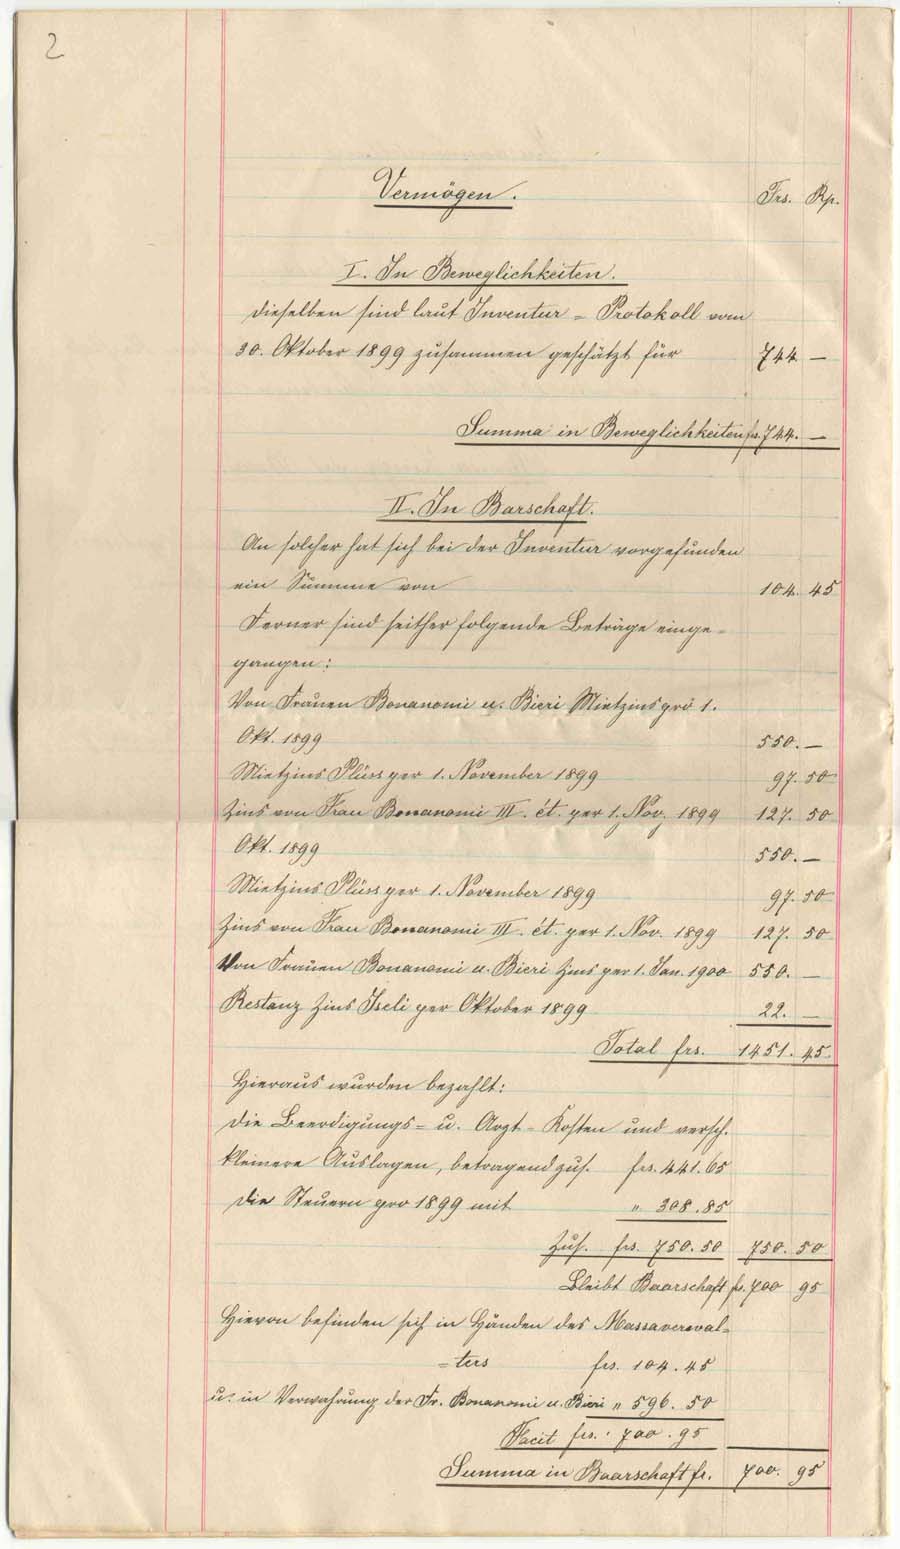 2
Vermögen. Frs. Rp.
I. In Beweglichkeiten.
dieselben sind laut Inventur = Protokoll vom
30. Oktober 1899 zusammen geschätzt für 744 —
Summa in Beweglichkeiten frs. 744. —
II. In Barschaft.
An solcher hat sich bei der Inventur vorgefunden
ein Summe von 104. 45
Ferner sind seither folgende Beträge einge=
gangen:
Von Frauen Bonanomi u. Bieri Mietzins pro 1.
Okt. 1899 550. —
Mietzins Plüss per 1. November 1899 97. 50
Zins von Frau Bonanomi III. ét. per 1. Nov. 1899 127. 50
Okt. 1899 550. —
Mietzins Plüss per 1. November 1899 97. 50
Zins von Frau Bonanomi III. ét. per 1. Nov. 1899 127. 50
Von Frauen Bonanomi u. Bieri Zins per 1. Jan. 1900 550. —
Restanz Zins Iseli per Oktober 1899 22. —
Total frs. 1451. 45.
Hieraus wurden bezahlt:
die Beerdigungs= u. Arzt= Kosten und versch.
kleinere Auslagen, betragend zus. frs. 441. 65
die Steuern pro 1899 mit " 308. 85
Zus. frs. 750. 50 750. 50
Bleibt Baarschaft fr. 700 95
Hievon befinden sich in Händen des Massaverwal=
=ters frs. 104. 45
u. in Verwahrung der Fr. Bonanomi u. Bieri " 596. 50
Facit frs. 700. 95
Summa in Baarschaft fr. 700. 95